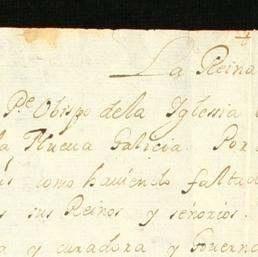 La Reina
Pe Obispo de la Iglessia
la Nueva Galicia. Por
como haviendo faltad
sus Reinos y señorios.
y curadora y Governa